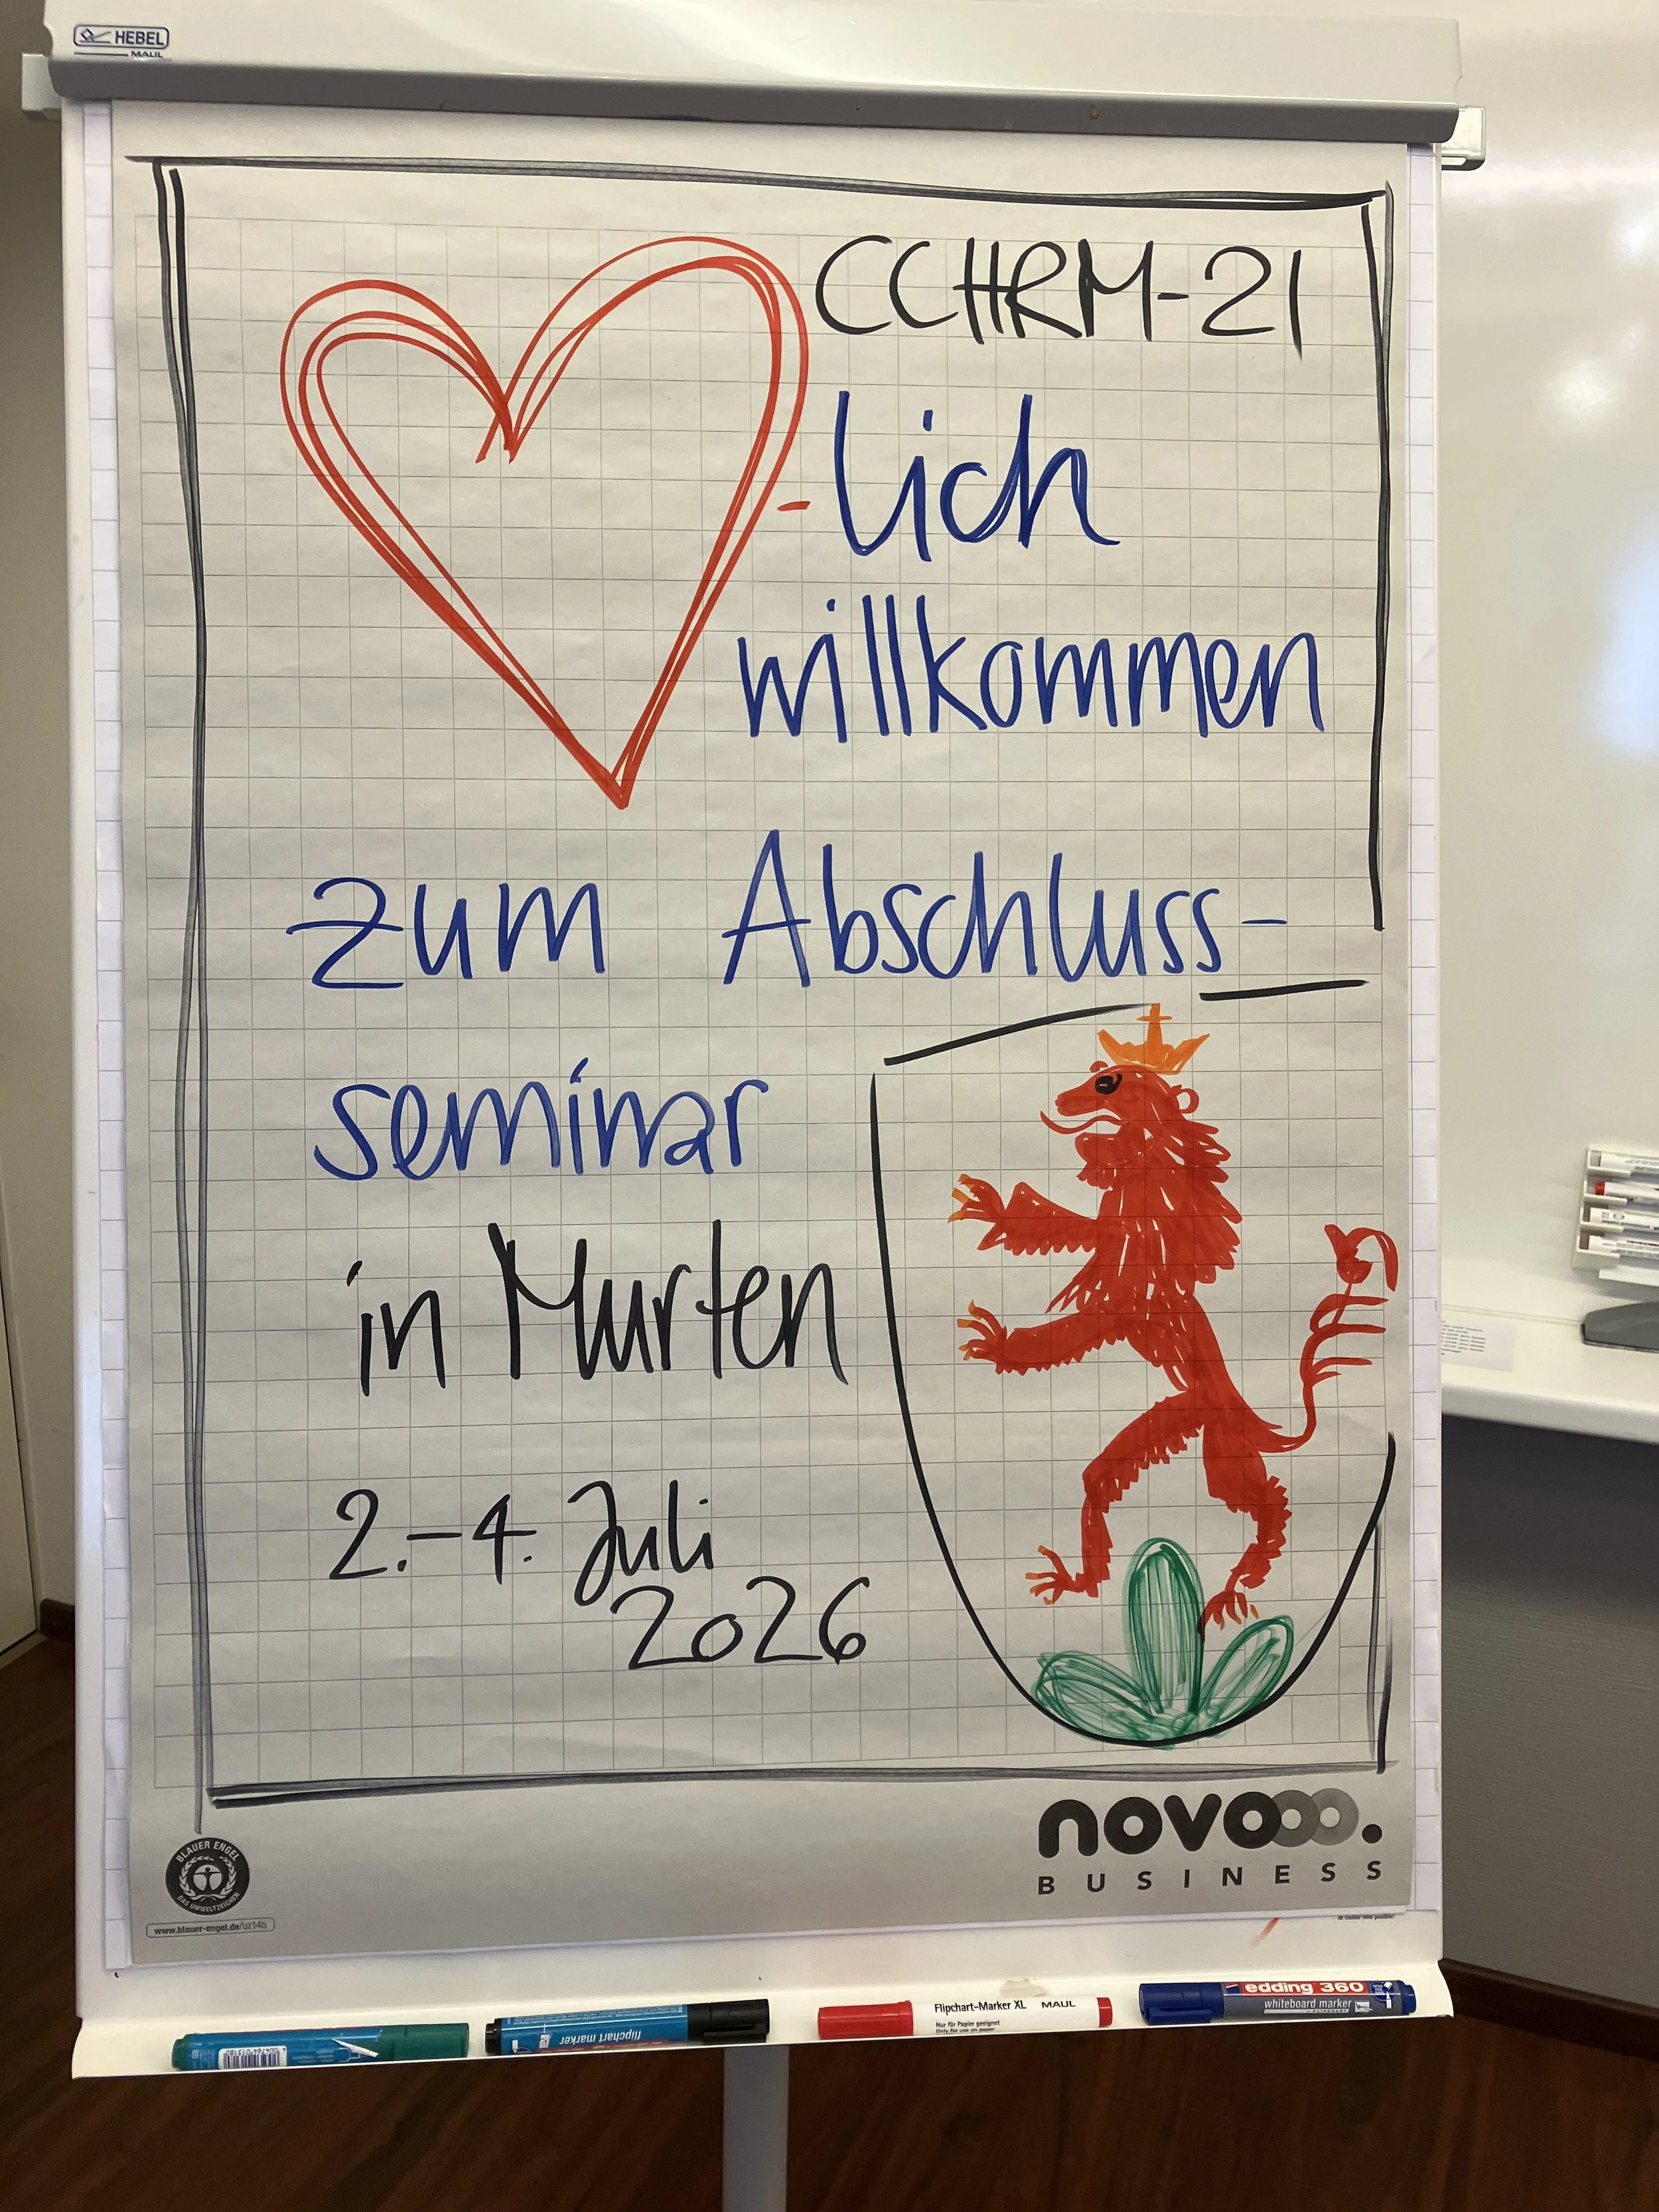 HEBEL
MAUL
CCHRM-21
-lich
willkommen
zum Abschluss-
seminar
in Murten
2.-4. Juli
2026
novooo.
BUSINESS
BLAUER ENGEL
DAS UMWELTZEICHEN
www.blauer-engel.de/uz14b
flipchart marker
Flipchart-Marker XL MAUL
Nur für Papier geeignet
Only for use on paper
edding 360
whiteboard marker